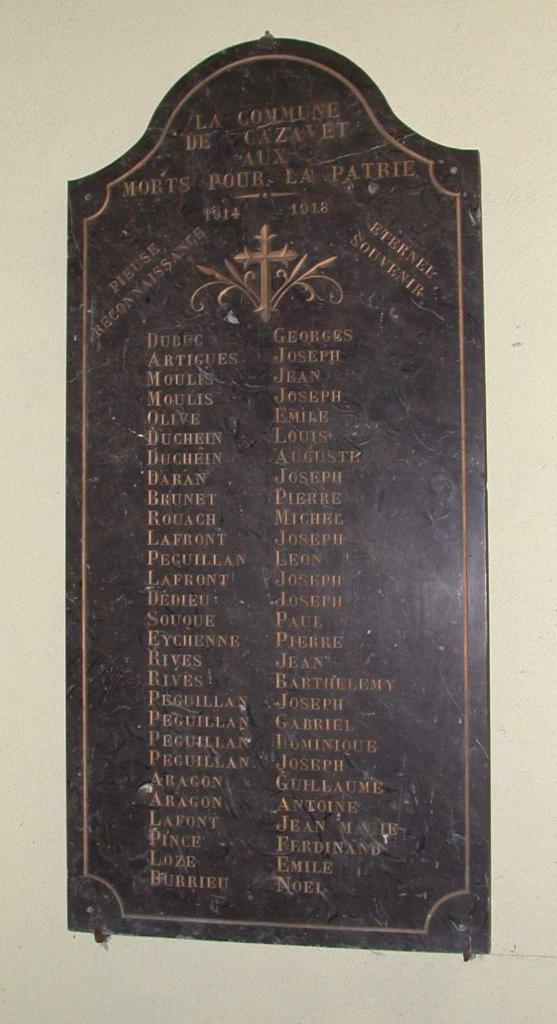 LA COMMUNE
DE CAZAVET
AUX
MORTS POUR LA PATRIE
1914 1918
PIEUSE
RECONNAISSANCE
ETERNEL
SOUVENIR
DUBUC GEORGES
ARTIGUES JOSEPH
MOULIS JEAN
MOULIS JOSEPH
OLIVE EMILE
DUCHEIN LOUIS
DUCHEIN AUGUSTE
DARAN JOSEPH
BRUNET PIERRE
ROUACH MICHEL
LAFRONT JOSEPH
PEGUILLAN LEON
LAFRONT JOSEPH
DEDIEU JOSEPH
SOUQUE PAUL
EYCHENNE PIERRE
RIVES JEAN
RIVES BARTHELEMY
PEGUILLAN JOSEPH
PEGUILLAN GABRIEL
PEGUILLAN DOMINIQUE
PEGUILLAN JOSEPH
ARAGON GUILLAUME
ARAGON ANTOINE
LAFONT JEAN MARIE
PINCE FERDINAND
LOZE EMILE
BURRIEU NOEL